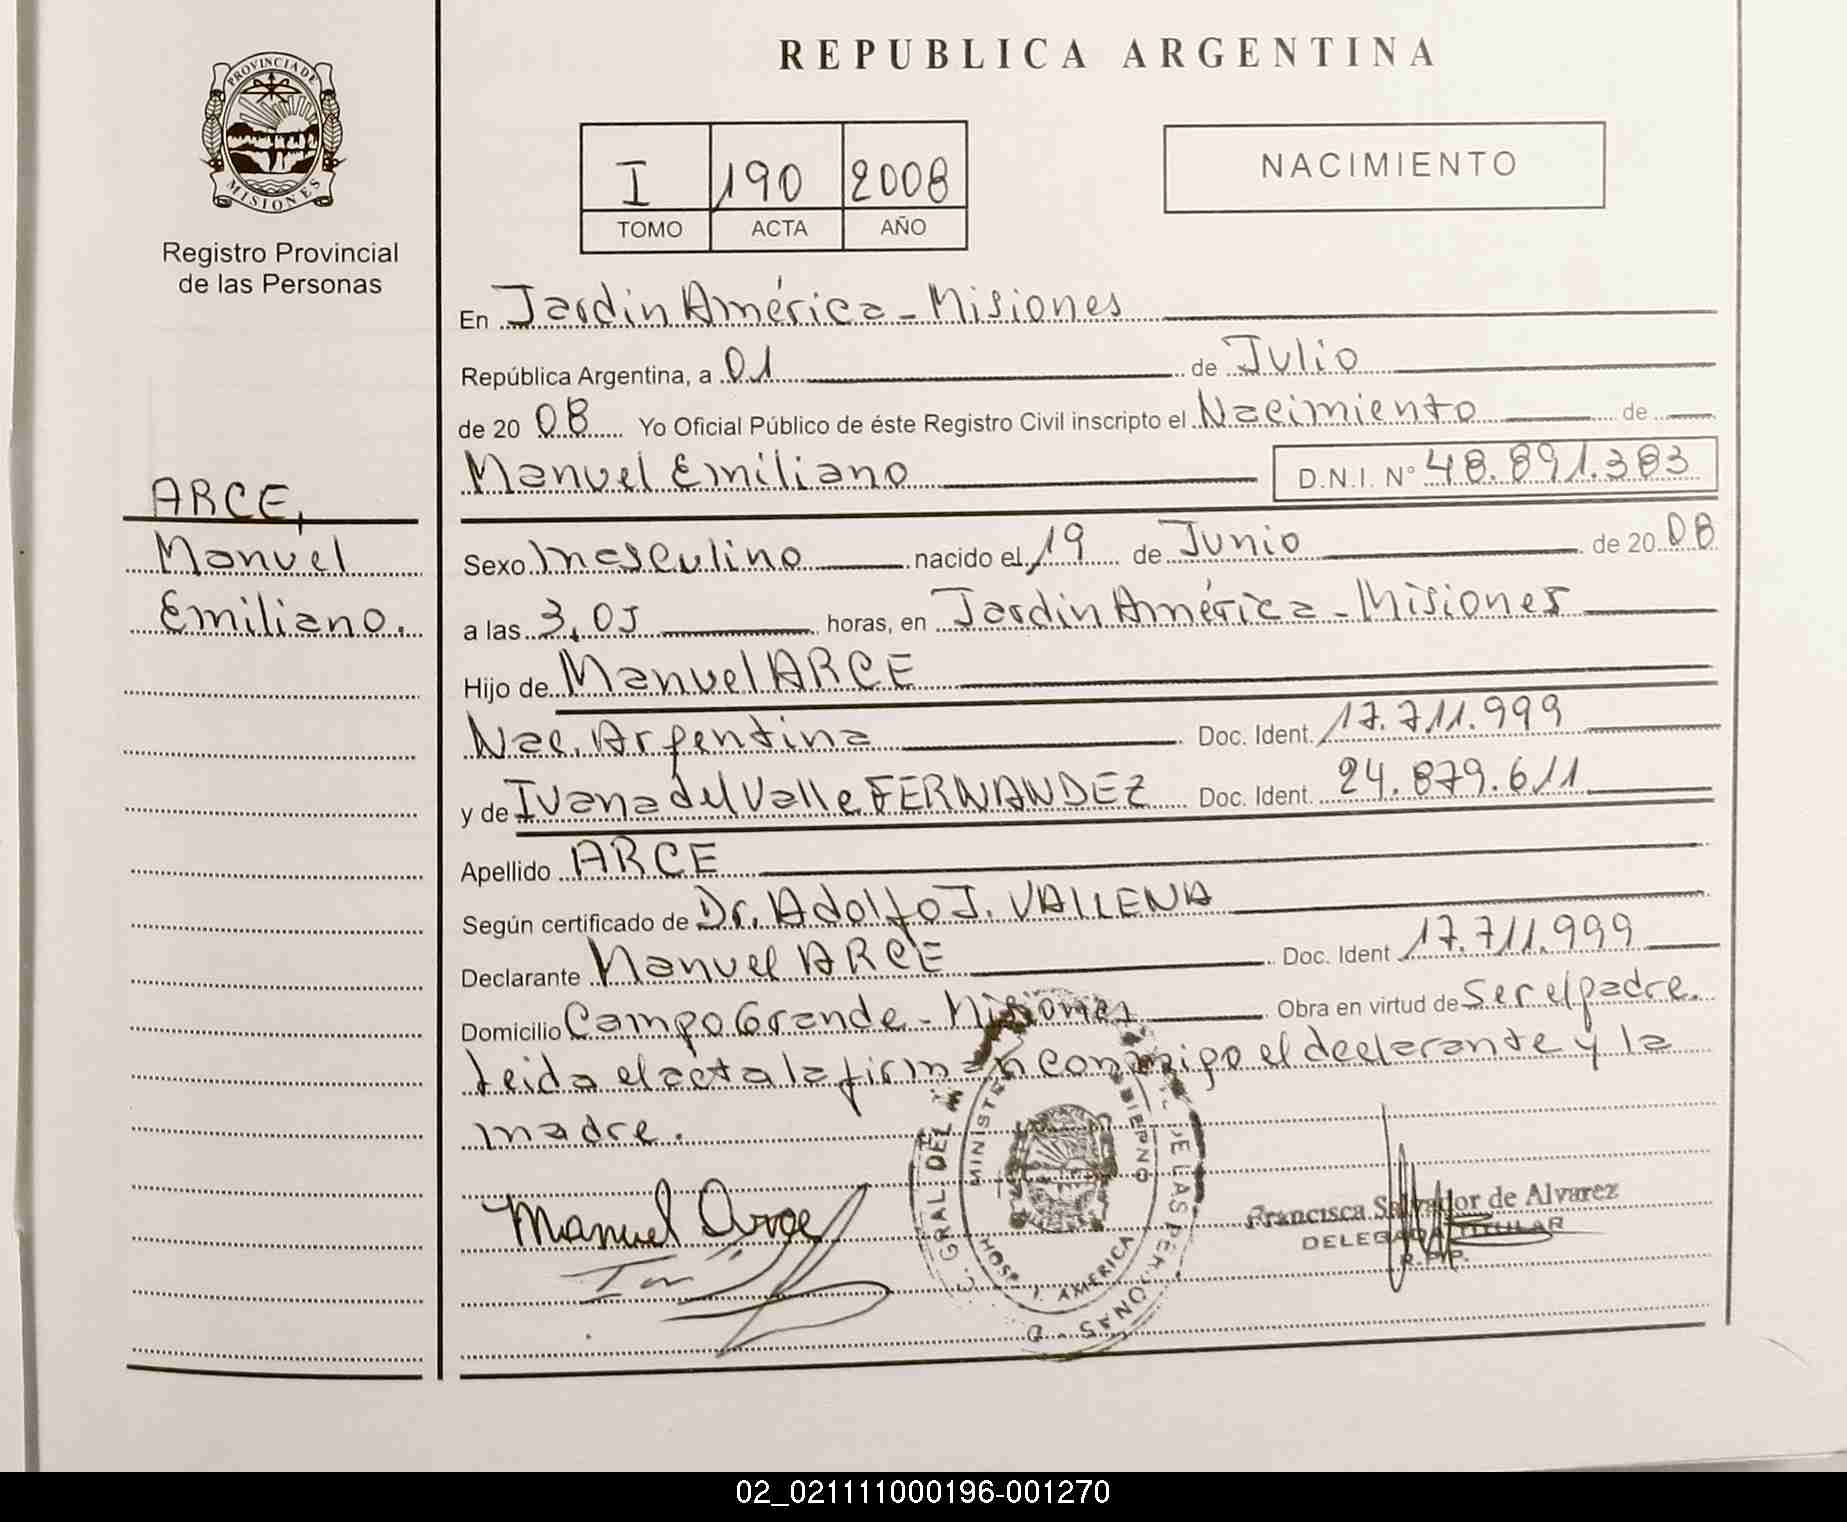 REPUBLICA ARGENTINA
PROVINCIA DE
MISIONES
Registro Provincial
de las Personas
I 190 2008
TOMO ACTA AÑO
NACIMIENTO
ARCE,
Manuel
Emiliano.
En Jardin América - Misiones
República Argentina, a 01 de Julio
de 20 08 Yo Oficial Público de éste Registro Civil inscripto el Nacimiento de
Manuel Emiliano D.N.I. N° 48.891.383
Sexo masculino nacido el 19 de Junio de 20 08
a las 3,05 horas, en Jardin América - Misiones
Hijo de Manuel ARCE
Nac. Argentina Doc. Ident. 17.711.999
y de Ivana del Valle FERNANDEZ Doc. Ident. 24.879.611
Apellido ARCE
Según certificado de Dr. Adolfo J. VALLENA
Declarante Manuel ARCE Doc. Ident 17.711.999
Domicilio Campo Grande - Misiones Obra en virtud de Ser el padre.
Leida el acta la firman conmigo el declarante y la
madre.
Manuel Arce
GRAL DEL
DE LAS PERSONAS
AMERICA
Francisca Salvador de Alvarez
DELEGADA TITULAR
R.P.P.
02_021111000196-001270